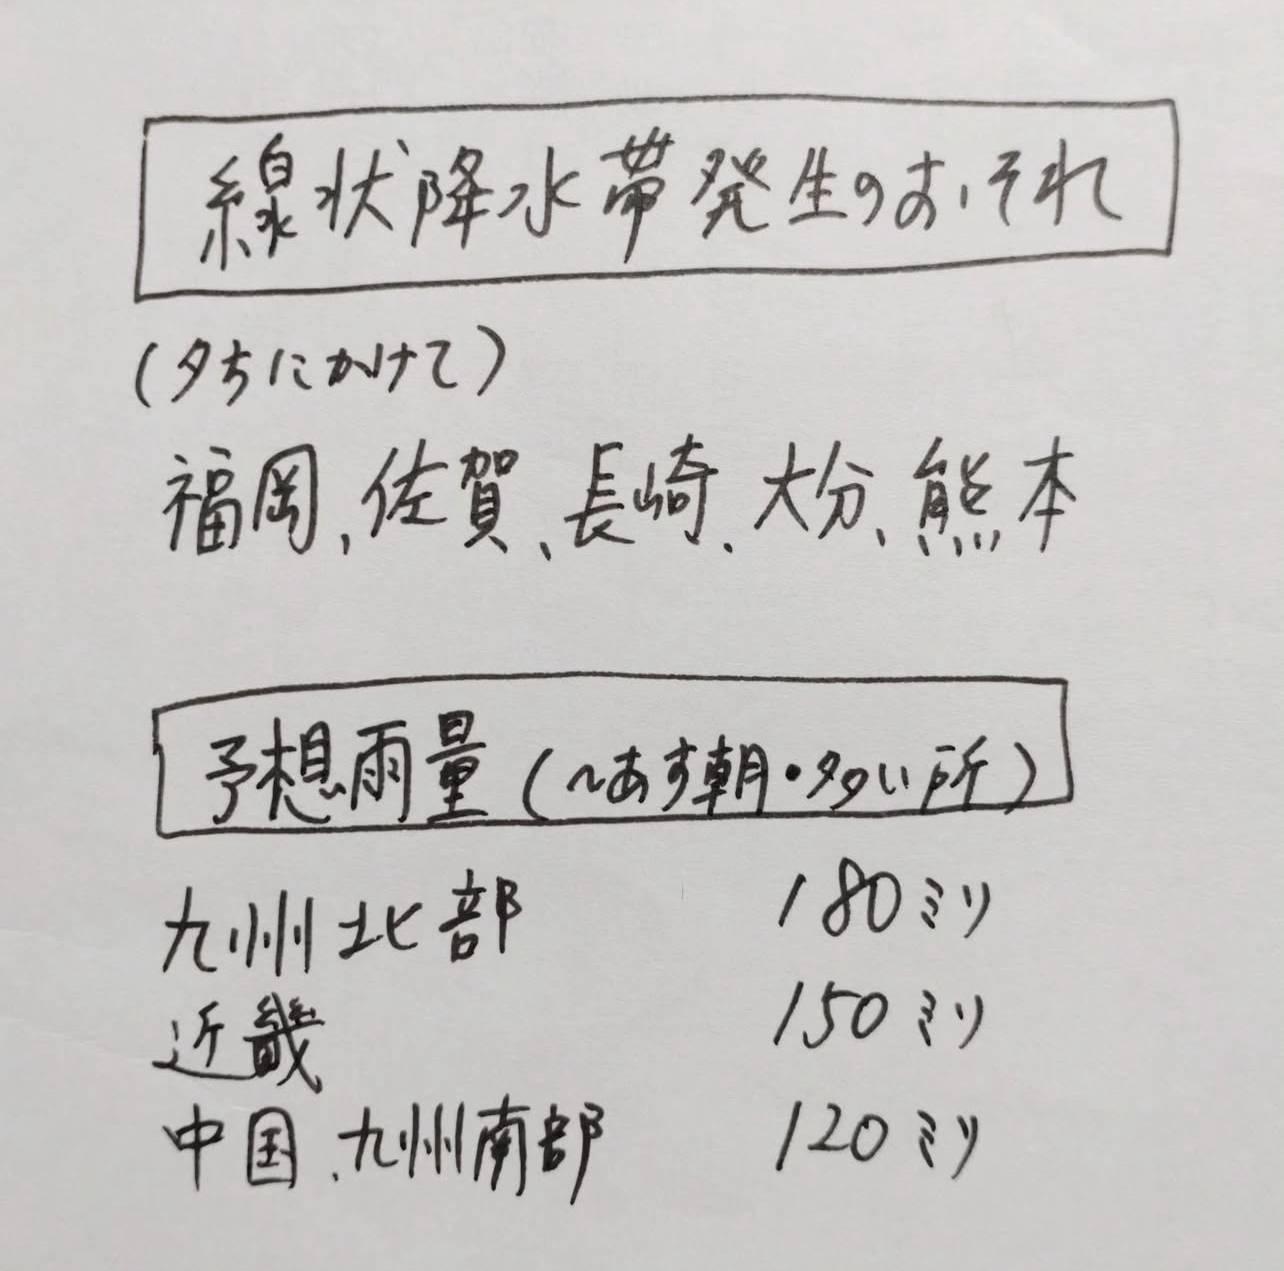 線状降水帯発生のおそれ
(夕ちにかけて)
福岡、佐賀、長崎、大分、熊本
予想雨量(~あす朝・多い所)
九州北部 180ミリ
近畿 150ミリ
中国、九州南部 120ミリ